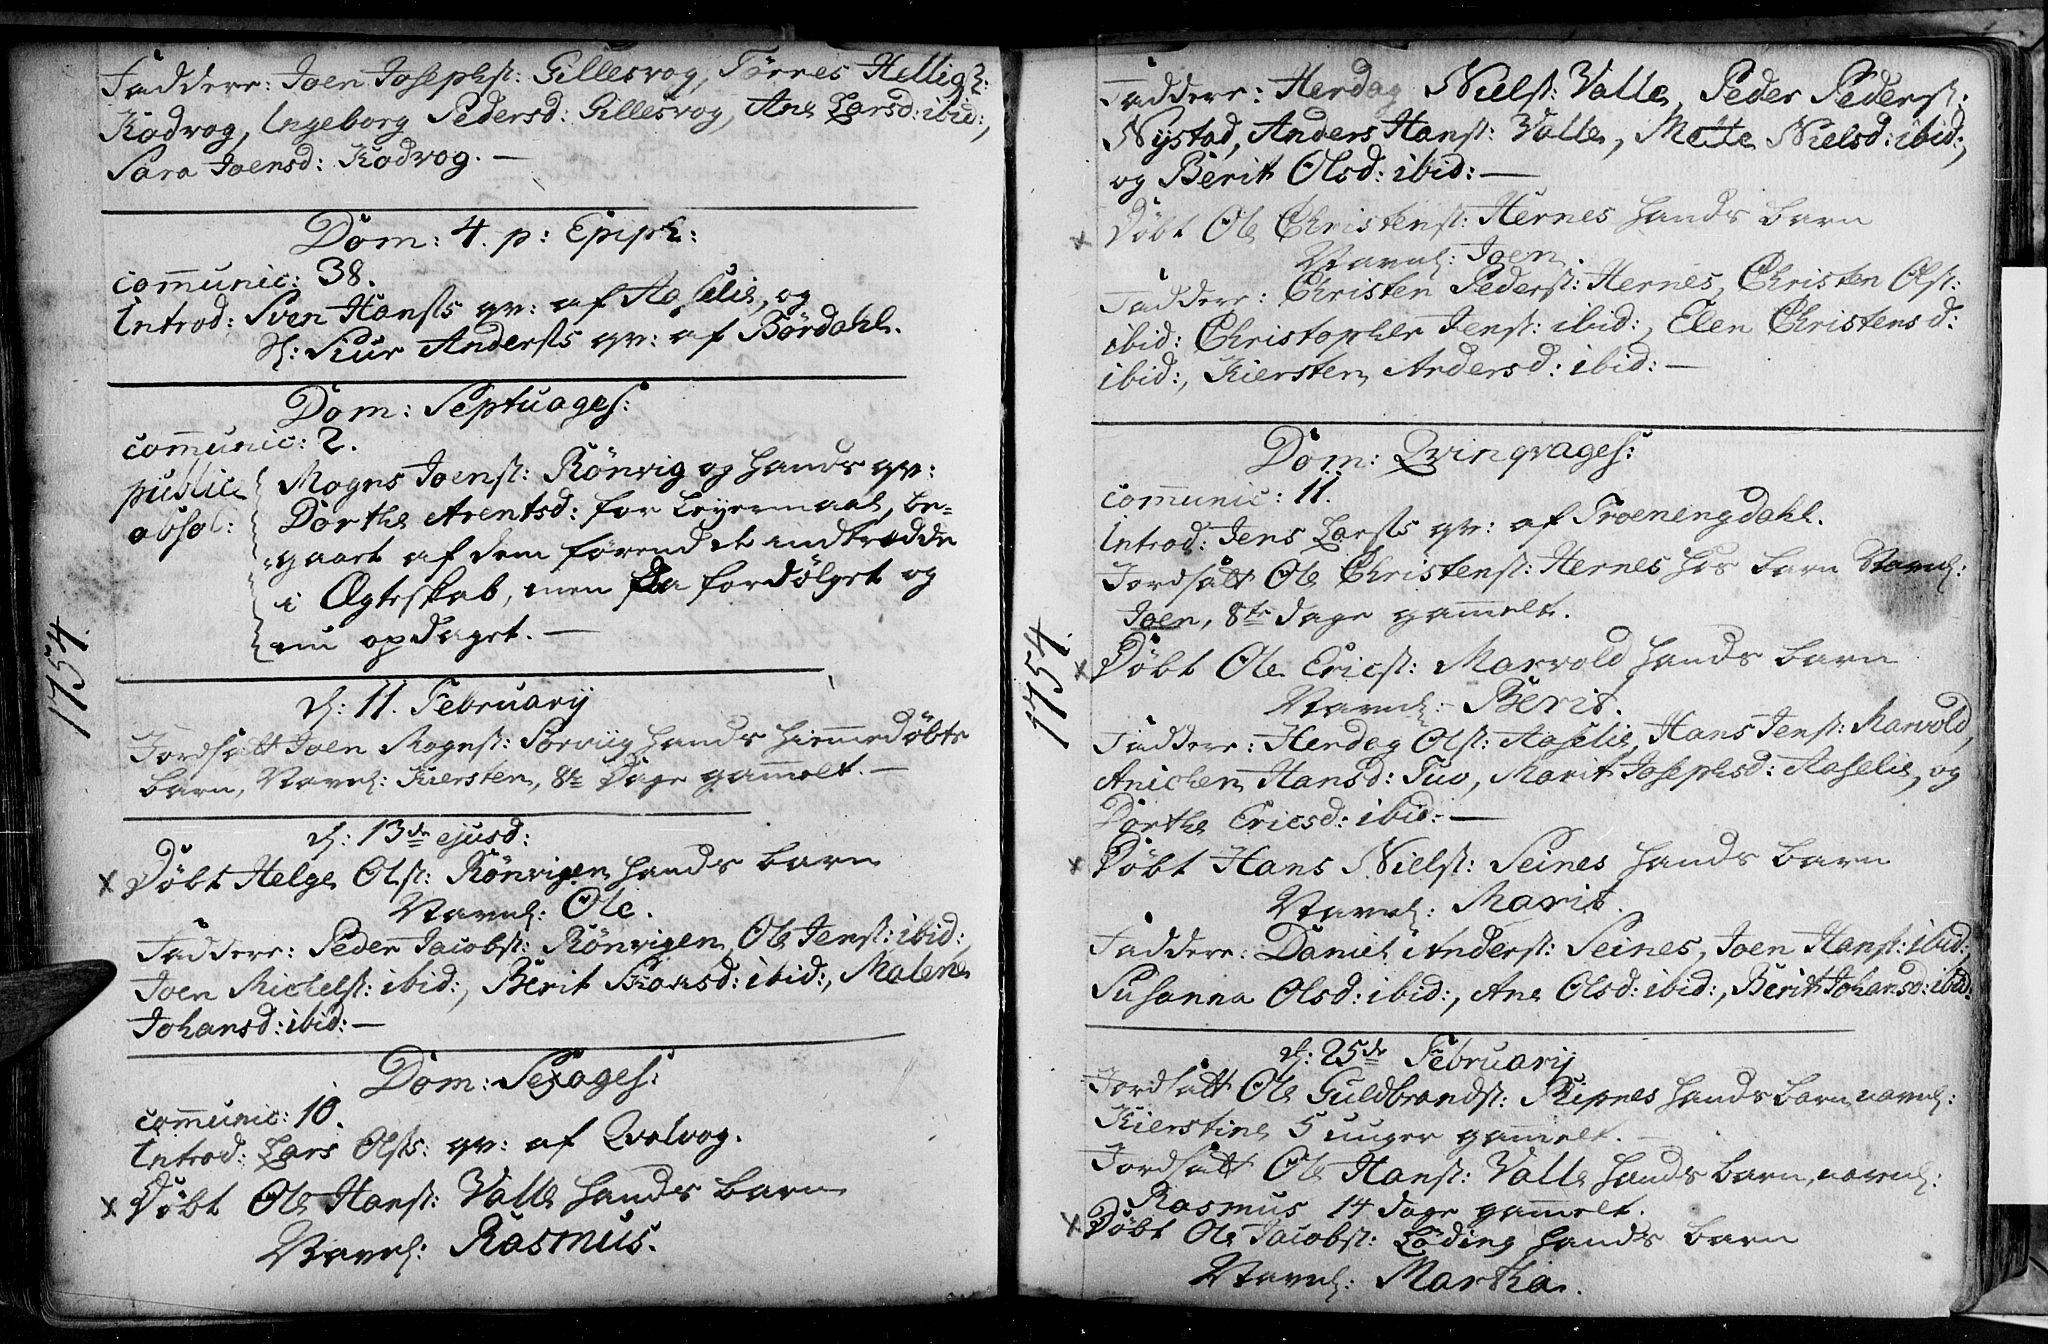 Faddere: Joen Josephs: Gillesvog, Tørres Helligs:
Kodvog, Ingeborg Pedersd: Gillesvog, Ane Larsd: ibid:,
Sara Joensd: Kodvog. —
Dom: 4. p: Epiph:
communic: 38.
Introd: Sven Hansts qv: af Aaselie, og
d: Siur Andersts qv: af Børdahl.
Dom: Septuages:
communic: 2.
public absol:
Mogns Joenst: Rönvig og hands qv:
Dorthe Arentsd: for Leyermaal, be-
gaaet af dem førend de indtrædde
i Ægteskab, men da fordölget og
nu opdaget. —
1754.
d: 11. February
Jordsatt Joen Mognst: Sörviig hands hiemmedøbte
barn, Navnl: Kiersten, 8te Dage gammelt. —
d: 13de ejusd:
x Döbt Helge Olst: Rönvigen hands barn
Navnl: Ole.
Faddere: Peder Jacobst: Rönvigen, Ole Jenst: ibid:,
Joen Michelst: ibid:, Berit Isaksd: ibid:, Malene
Johansd: ibid: —
Dom: Sexages:
communic: 10.
Introd: Lars Olsts: qv: af Qvalvog.
x Döbt Ole Hanst: Valle hands barn
Navnl: Rasmus.
Faddere: Herdag Nielst: Valle, Peder Pederst:
Nystad, Anders Hanst: Valle, Mette Nielsd: ibid:,
og Berit Olsd: ibid: —
x Döbt Ole Christenst: Hernes hands barn
Navnl: Joen.
Faddere: Christen Pederst: Hernes, Christen Olst:
ibid: Christopher Jenst: ibid:, Elen Christensd:
ibid:, Kiersten Andersd: ibid: —
Dom: Qvinqvages:
communic: 11.
Introd: Jens Larsts qv: af Troeningdahl.
Jordsatt Ole Christenst: Hernes hos barn Navnl:
Joen, 8te dage gammelt.
1754.
x Döbt Ole Ericst: Marvold hands barn
Navnl: Berit.
Faddere: Herdag Olst: Aaselie, Hans Jenst: Marvold,
Anichen Hansd: Tuv, Marit Josephsd: Aaselie, og
Dorthe Ericsd: ibid: —
x Döbt Hans Nielst: Seines hands barn
Navnl: Marit.
Faddere: Daniel Anderst: Seines, Joen Hanst: ibid:,
Susanna Olsd: ibid:, Ane Olsd: ibid:, Berit Johansd: ibid:
d: 25de February
Jordsatt Ole Guldbrandst: Ripnes hands barn, navnl:
Kierstine 5 uuger gammelt. —
Jordsatt Ole Hanst: Valle hands barn, navnl:
Rasmus 14 dage gammelt.
x Döbt Ole Jacobst: Löding hands barn
Navnl: Martha.